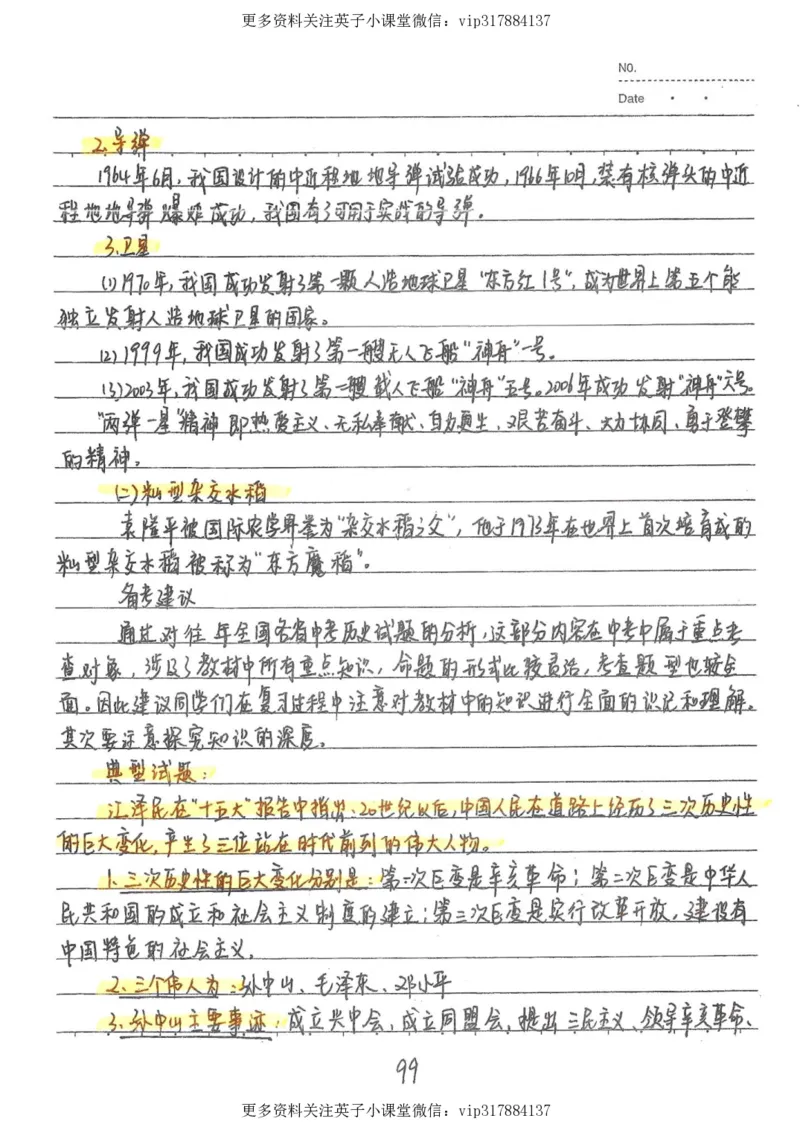 更多资料关注英子小课堂微信：vip317884137
NO.
Date
2.导弹
1964年6月，我国设计的中近程地地导弹试验成功，1966年10月，禁有核弹头的中近
程地地导弹爆炸成功，我国有了可用于实战的导弹。
3.卫星
(1)1970年，我国成功发射了第一颗人造地球卫星“东方红1号”，成为世界上第五个能
独立发射人造地球卫星的国家。
(2)1999年，我国成功发射了第一艘无人飞船“神舟”一号。
(3)2003年，我国成功发射了第一艘载人飞船“神舟”五号。2006年成功发射“神舟”六号。
“两弹一星”精神即热爱主义、无私奉献、自力更生，艰苦奋斗、大力协同、勇于登攀
的精神。
(二)籼型杂交水稻
袁隆平被国际农学界誉为“杂交水稻之父”，他于1973年在世界上首次培育成的
籼型杂交水稻被称为“东方魔稻”。
备考建议
通过对往年全国各省中考历史试题的分析，这部分内容在中考中属于重点考
查对象，涉及了教材中所有重点知识，命题的形式比较灵活，考查题型也较全
面。因此建议同学们在复习过程中注意对教材中的知识进行全面的识记和理解。
其次要注意探究知识的深度。
典型试题：
江泽民在“十五大”报告中指出：20世纪以后，中国人民在道路上经历了三次历史性
的巨大变化，产生了三位站在时代前列的伟大人物。
1.三次历史性的巨大变化分别是：第一次巨变是辛亥革命；第二次巨变是中华人
民共和国的成立和社会主义制度的建立；第三次巨变是实行改革开放，建设有
中国特色的社会主义。
2.三个伟人为：孙中山、毛泽东、邓小平
3.孙中山主要事迹：成立兴中会，成立同盟会，提出三民主义、领导辛亥革命、
99
更多资料关注英子小课堂微信：vip317884137